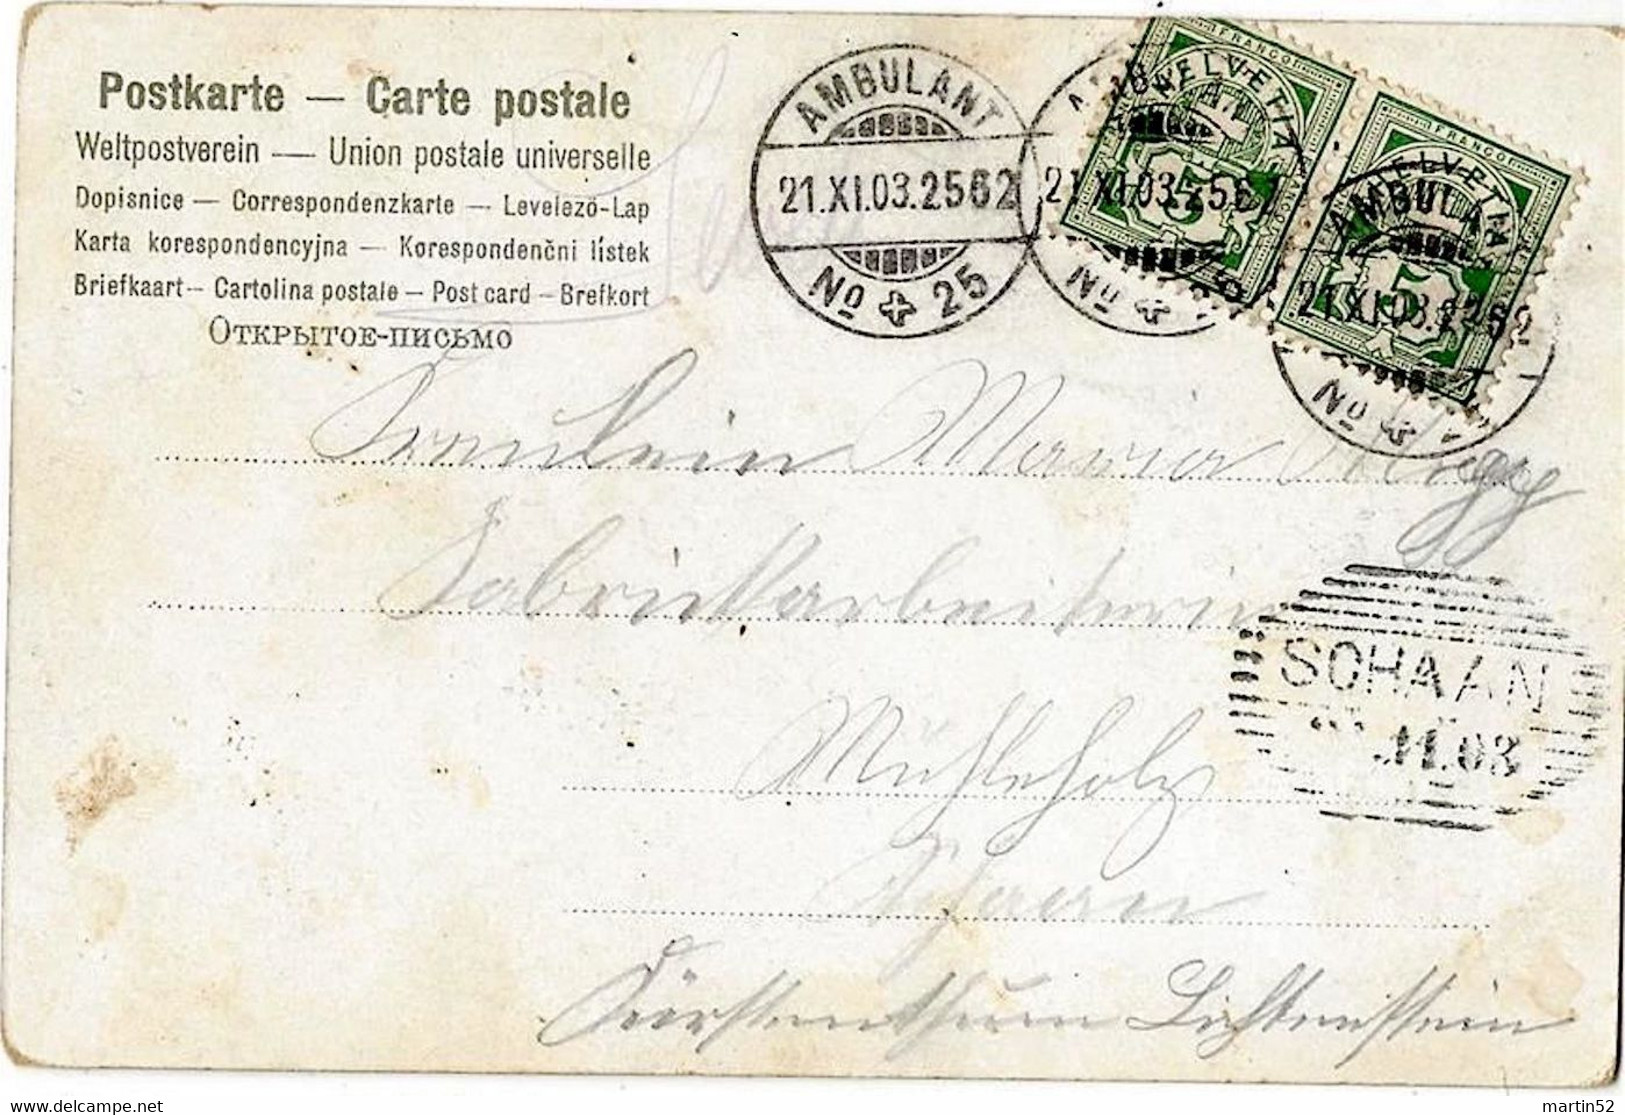 Postkarte — Carte postale
Weltpostverein — Union postale universelle
Dopisnice — Correspondenzkarte — Levelezö-Lap
Karta korespondencyjna — Korespondenčni lístek
Briefkaart — Cartolina postale — Post card — Brefkort
Открытое-письмо
AMBULANT
21.XI.03.2562
No 25
HELVETIA
FRANCO
5
21.XI.03.256
No
HELVETIA
FRANCO
5
AMBULA
21.XI.03.
No
Fräulein Maria
Fabrikarbeiterin
SCHAAN
.11.03
Mühleholz
Schaan
Fürstenthum Lichtenstein
martin52